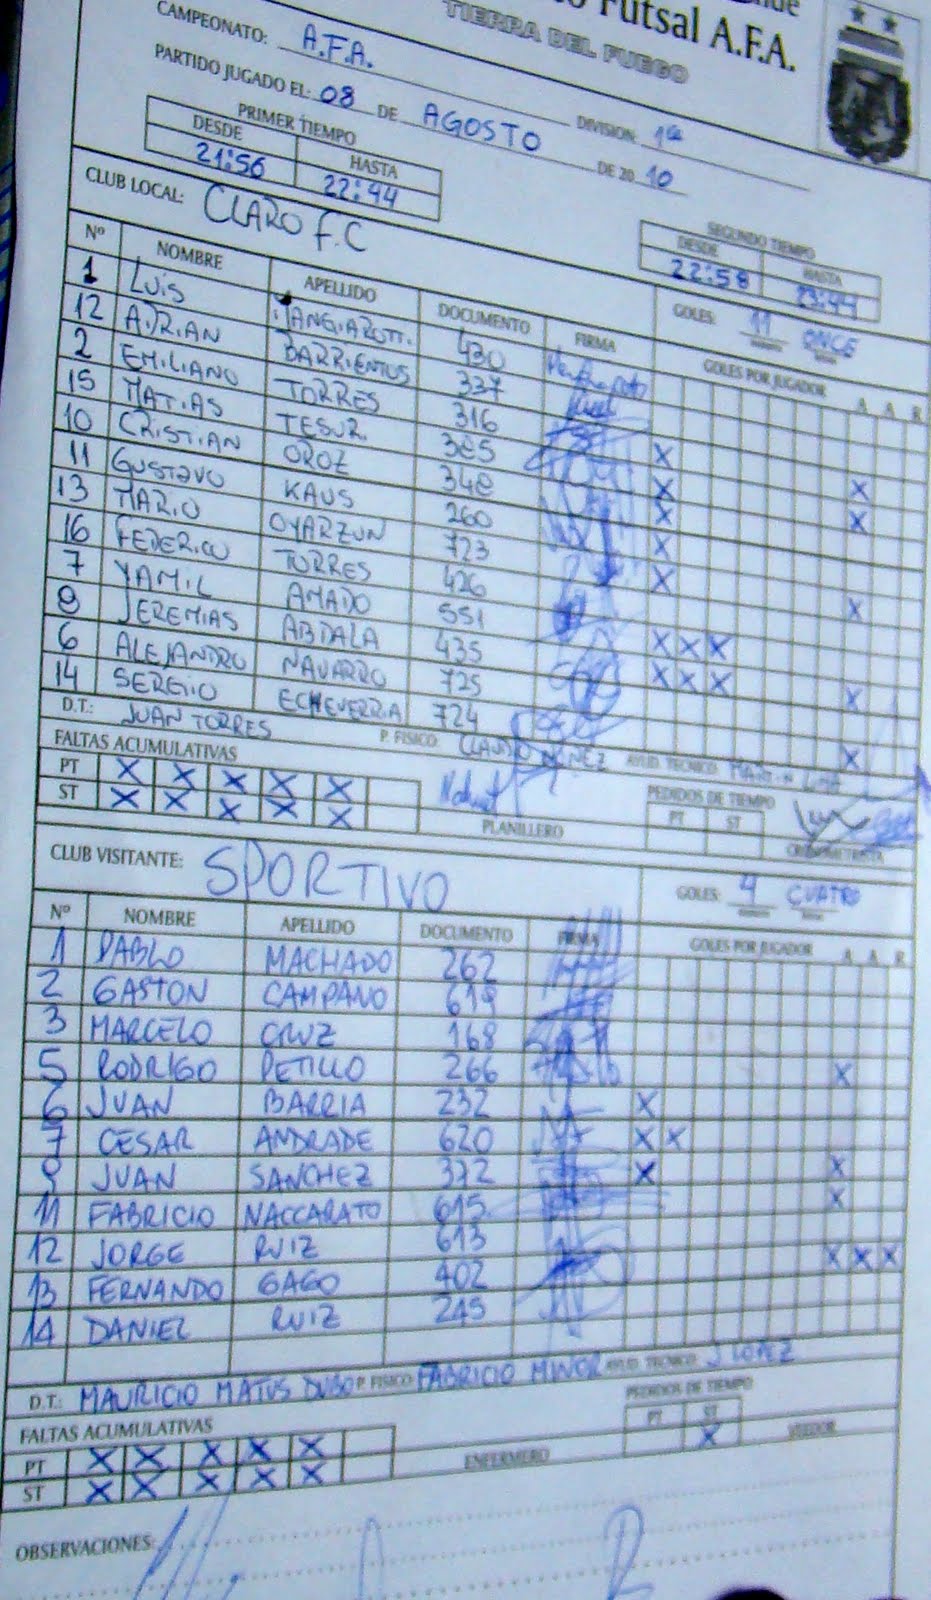 Futsal A.F.A.
TIERRA DEL FUEGO
CAMPEONATO: A.F.A. DIVISION: 1ra
PARTIDO JUGADO EL: 08 DE AGOSTO DE 20 10
PRIMER TIEMPO
DESDE HASTA
21:56 22:44
SEGUNDO TIEMPO
DESDE HASTA
22:58 23:44
CLUB LOCAL: CLARO F.C GOLES: 11 ONCE
Nº NOMBRE APELLIDO DOCUMENTO FIRMA GOLES POR JUGADOR A A R
1 LUIS MANGIAROTTI 430
12 ADRIAN BARRIENTOS 337
2 EMILIANO TORRES 316
15 MATIAS TESUR 385 X
10 CRISTIAN OROZ 348 X X
11 GUSTAVO KAUS 260 X X
13 MARIO OYARZUN 723 X
16 FEDERICO TORRES 426 X
7 YAMIL AMADO 551 X
8 JEREMIAS ABDALA 435 X X X
6 ALEJANDRO NAVARRO 725 X X X X
14 SERGIO ECHEVERRIA 724
D.T.: JUAN TORRES P. FISICO: CLAUDIO NUÑEZ AYUD. TECNICO: MARTIN X
FALTAS ACUMULATIVAS PEDIDOS DE TIEMPO
PT X X X X X PT ST
ST X X X X X PLANILLERO CRONOMETRISTA
CLUB VISITANTE: SPORTIVO GOLES: 4 CUATRO
Nº NOMBRE APELLIDO DOCUMENTO FIRMA GOLES POR JUGADOR A A R
1 PABLO MACHADO 262
2 GASTON CAMPANO 619
3 MARCELO CRUZ 168
5 RODRIGO PETILLO 266 X
6 JUAN BARRIA 232 X
7 CESAR ANDRADE 620 X X
8 JUAN SANCHEZ 372 X X
11 FABRICIO NACCARATO 615 X
12 JORGE RUIZ 613 X X X
13 FERNANDO GAGO 402
14 DANIEL RUIZ 245
D.T.: MAURICIO MATUS DUBO P. FISICO: FABRICIO MINOR AYUD. TECNICO: J LOPEZ
FALTAS ACUMULATIVAS PEDIDOS DE TIEMPO
PT X X X X X ENFERMERO PT ST VEEDOR
ST X X X X X X
OBSERVACIONES: